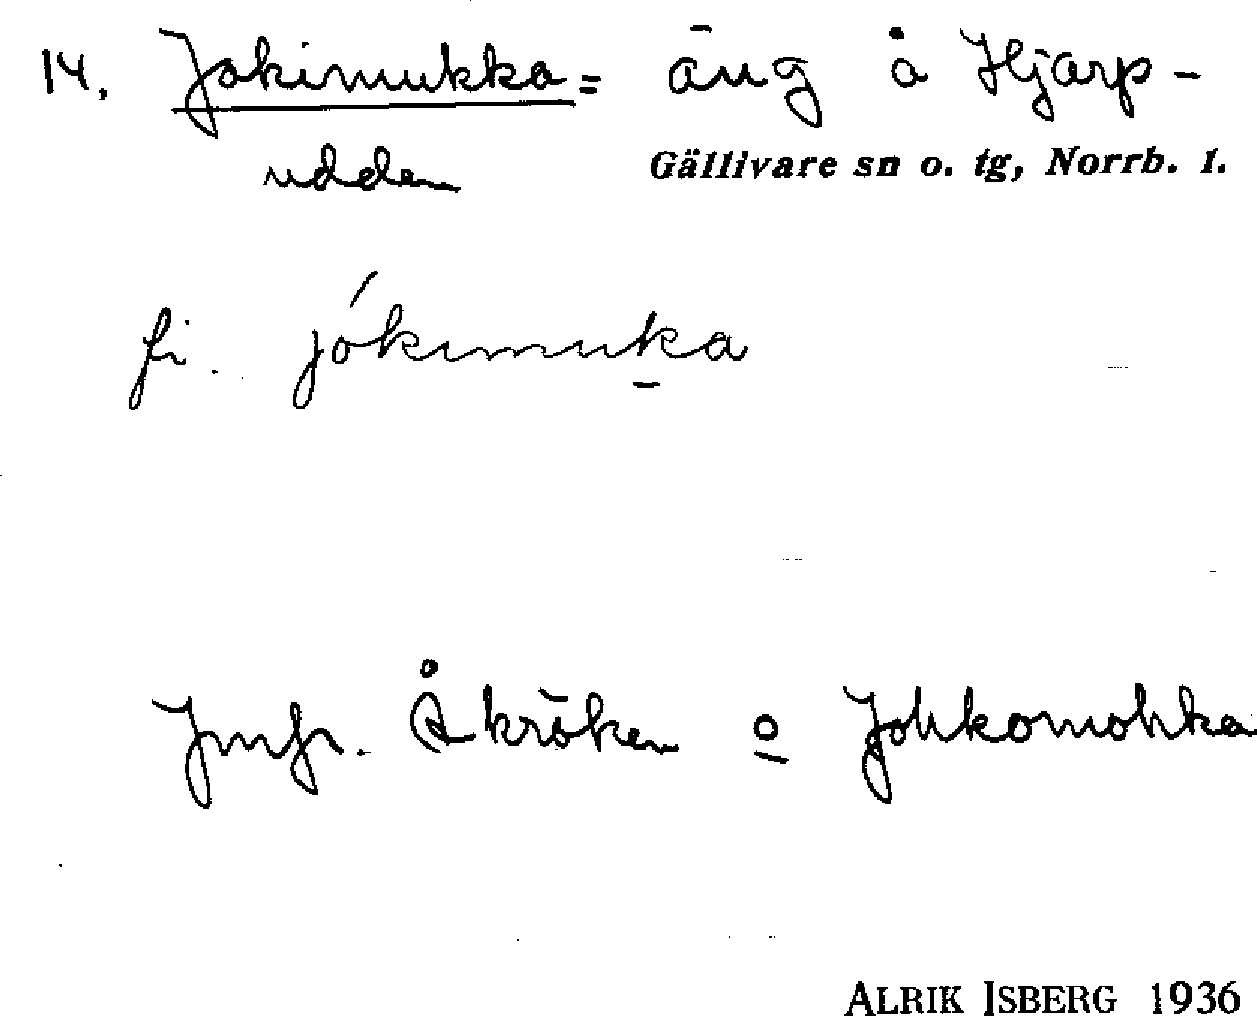 14. Jokimukka = äng å Hjärp-
udden
Gällivare sn o. tg, Norrb. l.
fi. jókimuka
Jmfr. Åkröken o Johkomohka
ALRIK ISBERG 1936